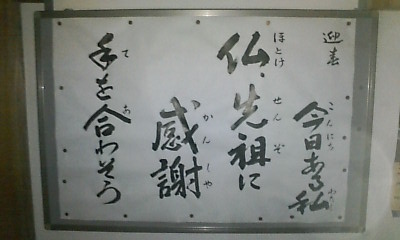 迎春
今日ある私
こんにち わたし
仏、先祖に
ほとけ せんぞ
感謝
かんしゃ
手を合わそう
て あ